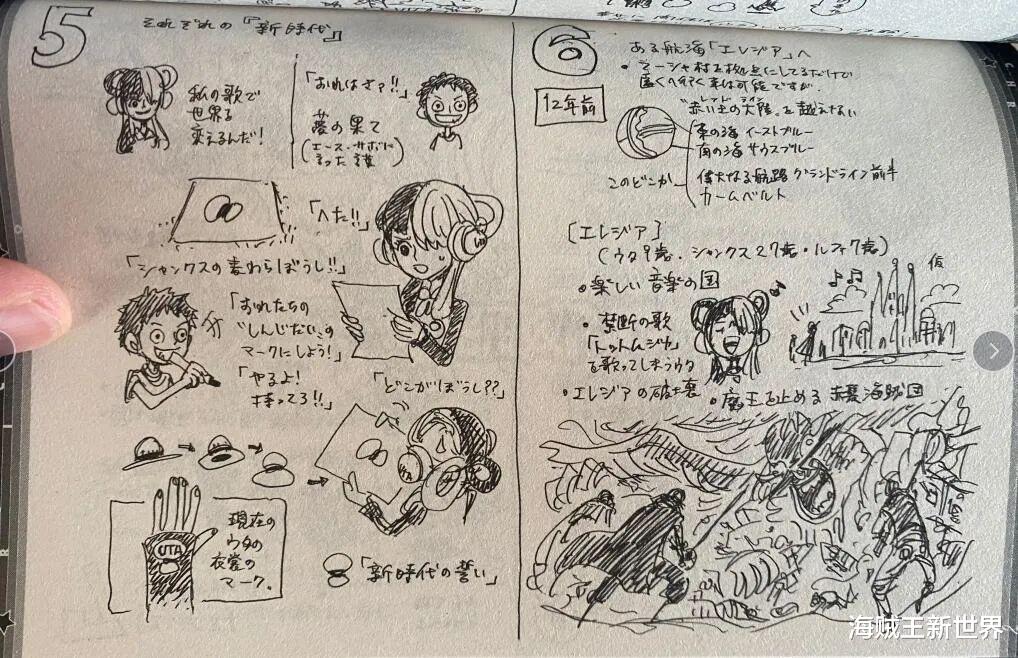 5
それぞれの『新時代』
私の歌で
世界を
変えるんだ!
「おれはさァ!!」
夢の果て
(エース・サボに
言った談)
「へた!!」
「シャンクスの麦わらぼうし!!」
「おれたちの
“しんじだい”の
マークにしよう!」
「やるよ!
持ってろ!!」
「どこがぼうし??」
UTA
現在の
ウタの
衣裳の
マーク。
「新時代の誓い」
6
ある航海「エレジア」へ
・フーシャ村を拠点にしてるだけで
遠くへ行く事は可能ですが
12年前
“赤い土の大陸”を越えない
レッドライン
東の海 イーストブルー
南の海 サウスブルー
このどこか
偉大なる航路 グランドライン前半
カームベルト
[エレジア]
(ウタ9歳・シャンクス27歳・ルフィ7歳)
・楽しい音楽の国
仮
・禁断の歌
「トットムジカ」
を歌ってしまうウタ
・エレジアの破壊
・魔王を止める赤髪海賊団
海贼王新世界